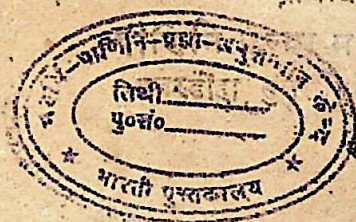 पाणिनि-प्रज्ञा-अनुसन्धान
तिथी
पु०सं०
भारती पुस्तकालय